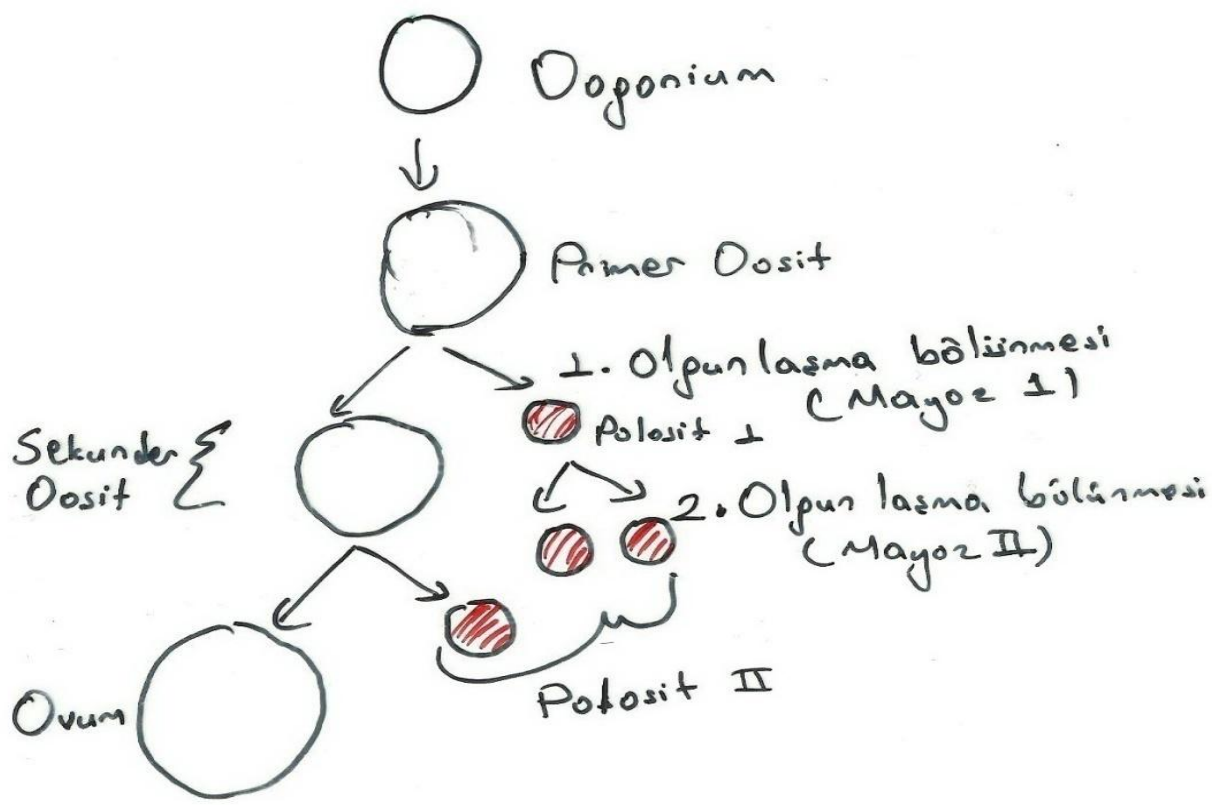 Oogonium
Primer Oosit
1. Olgunlaşma bölünmesi
(Mayoz 1)
Polosit 1
Sekunder
Oosit
2. Olgunlaşma bölünmesi
(Mayoz II)
Polosit II
Ovum